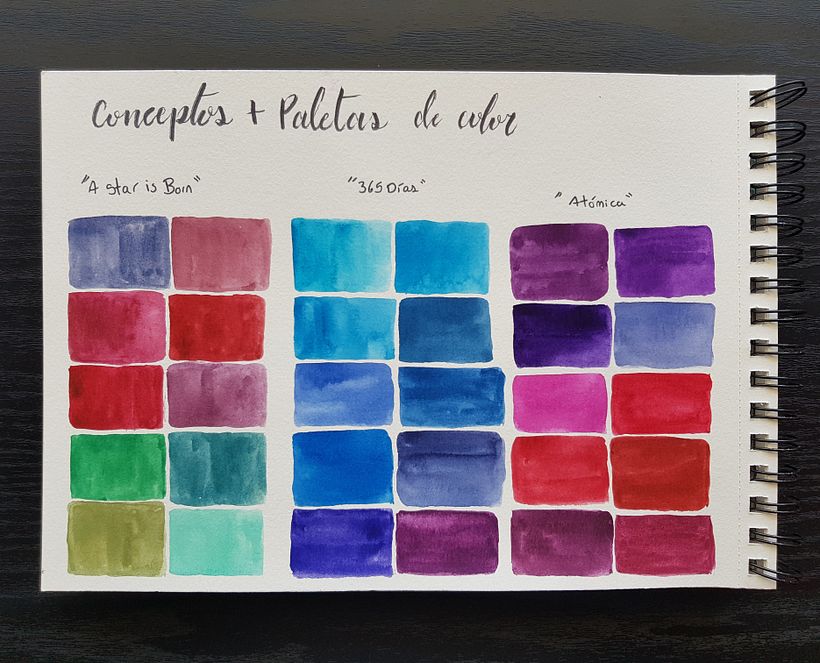 Conceptos + Paletas de color
"A star is Born"
"365 Días"
"Atómica"